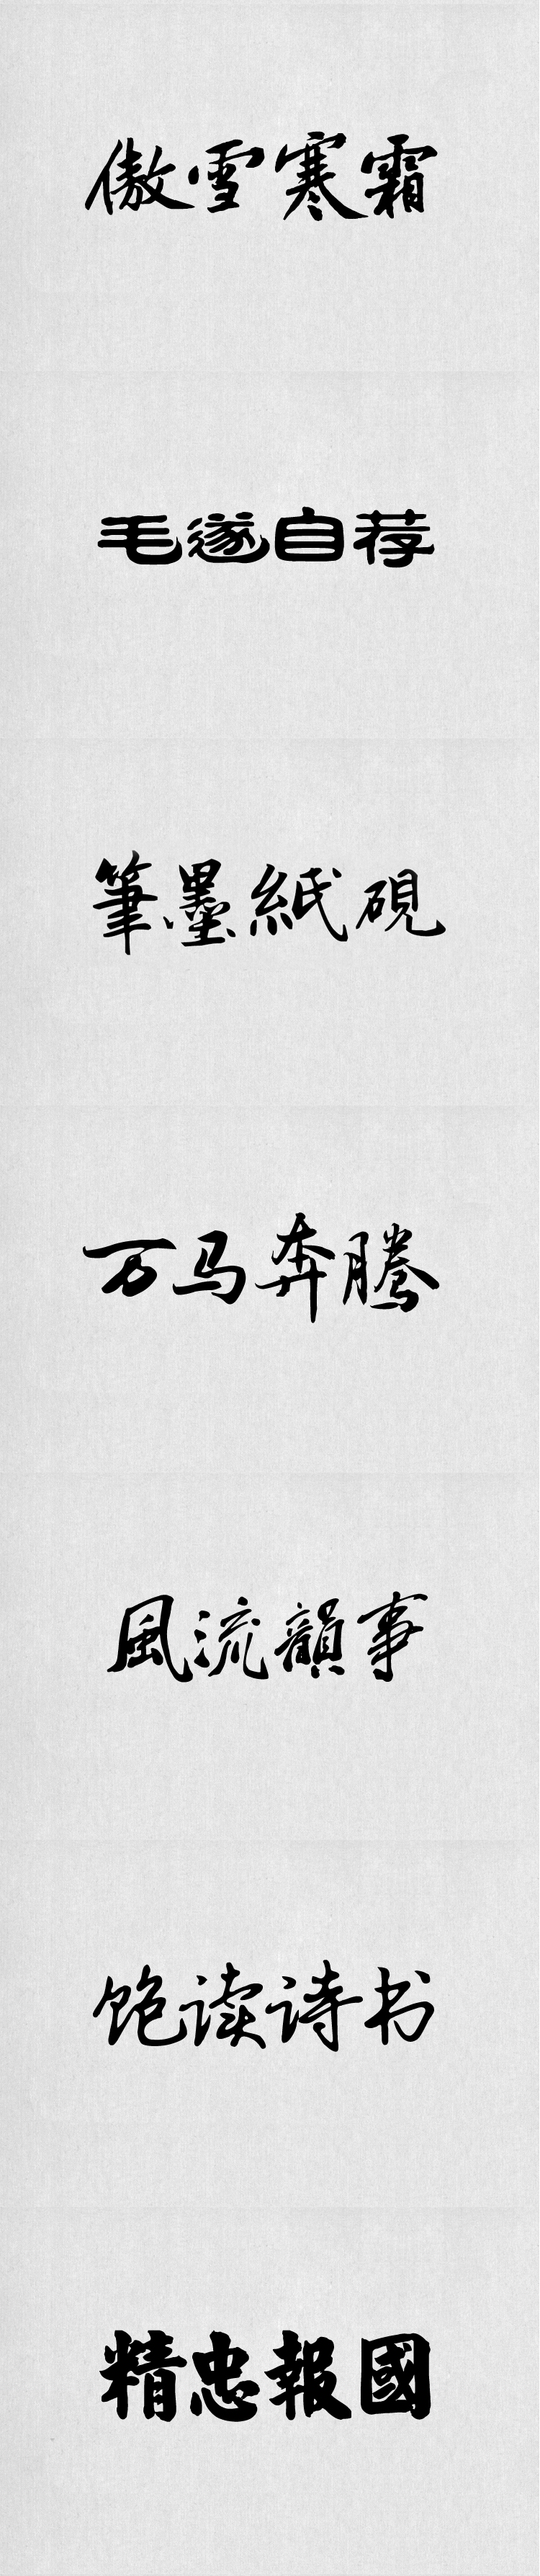 傲雪寒霜
毛遂自荐
筆墨紙硯
万马奔騰
風流韻事
饱读诗书
精忠報國